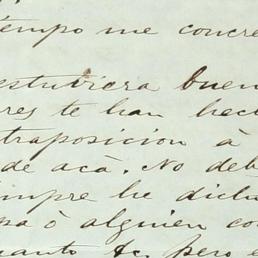 tiempo me concre
estuviera buen
res te han hech
traposicion à
de acà. No deb
empre he dich
pa ò alguien co
uanto &c, pero e